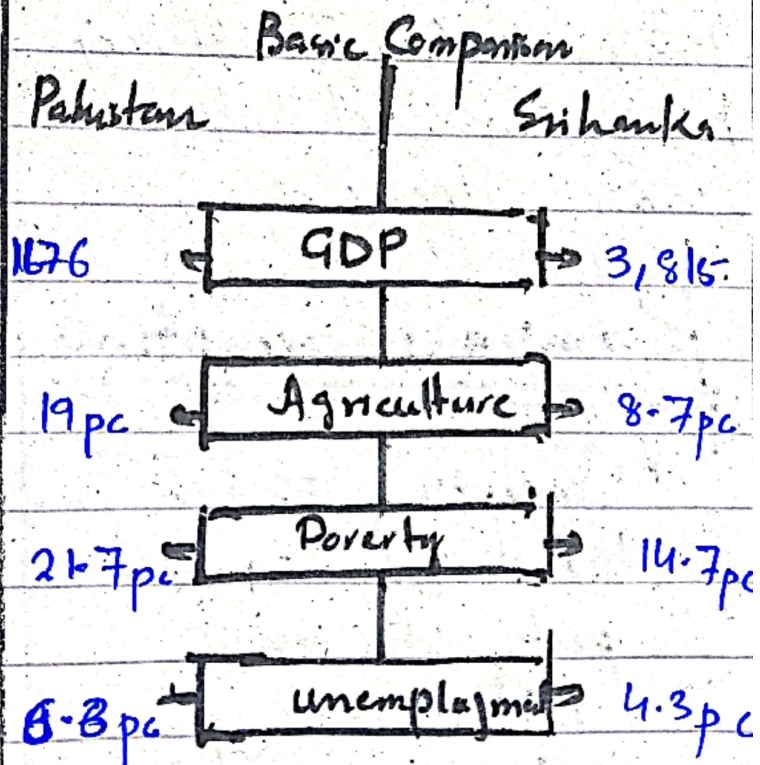 Basic Comparison
Pakistan Srilanka
1676 GDP 3,815
19pc Agriculture 8.7pc
21.7pc Poverty 14.7pc
unemployment 4.3pc